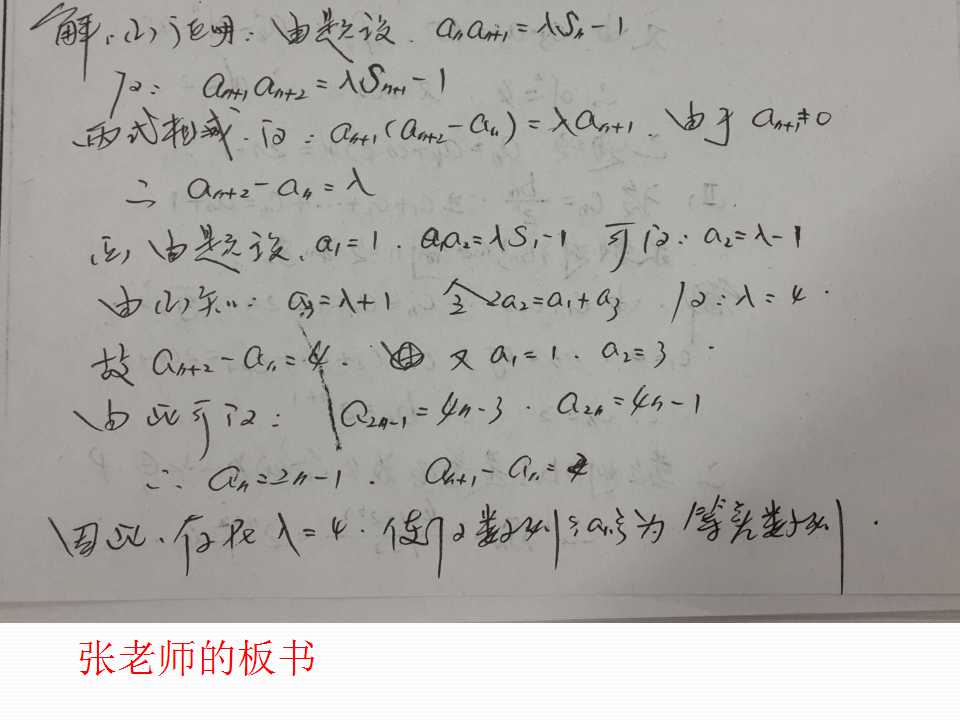 解:(1)证明:由题设. aₙaₙ₊₁=λSₙ-1
得: aₙ₊₁aₙ₊₂=λSₙ₊₁-1
两式相减.得: aₙ₊₁(aₙ₊₂-aₙ)=λaₙ₊₁. 由于 aₙ₊₁≠0
∴ aₙ₊₂-aₙ=λ
(2) 由题设. a₁=1. a₁a₂=λS₁-1 可得: a₂=λ-1
由(1)知: a₃=λ+1 令2a₂=a₁+a₃ 得:λ=4.
故 aₙ₊₂-aₙ=4. 又 a₁=1. a₂=3.
由此可得: a₂ₙ₋₁=4n-3. a₂ₙ=4n-1
∴ aₙ=2n-1. aₙ₊₁-aₙ=
因此.存在λ=4.使得数列{aₙ}为等差数列.
张老师的板书